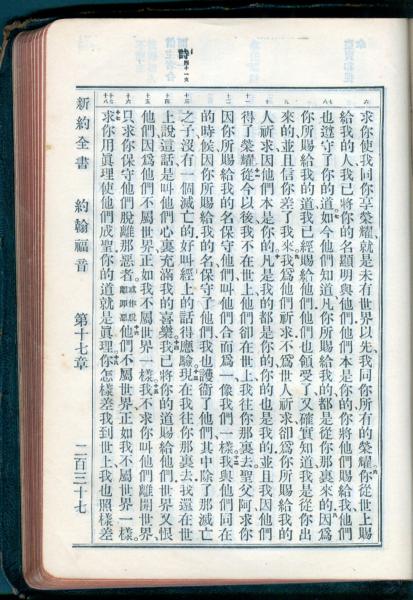 求你使我同你享榮耀就是未有世界以先我同你所有的榮耀你從世上賜
給我的人我已將你的名顯明與他們他們本是你的你將他們賜給我他們
也遵守了你的道如今他們知道凡你所賜給我的都是從你那裏來的因爲
你所賜給我的道我已經賜給他們他們也領受了又確實知道我是從你出
來的並且信你差了我來我爲他們祈求不爲世人祈求卻爲你所賜給我的
人祈求因他們本是你的凡是我的都是你的你的也是我的並且我因他們
得了榮耀從今以後我不在世上他們卻在世上我往你那裏去聖父阿求你
因你所賜給我的名保守他們叫他們合而爲一像我們一樣我與他們同在
的時候因你所賜給我的名保守了他們我也護衞了他們其中除了那滅亡
之子沒有一個滅亡的好叫經上的話得應驗現在我往你那裏去我還在世
上說這話是叫他們心裏充滿我的喜樂我已將你的道賜給他們世界又恨
他們因爲他們不屬世界正如我不屬世界一樣我不求你叫他們離開世界
只求你保守他們脫離那惡者或作脫離罪惡他們不屬世界正如我不屬世界一樣
求你用眞理使他們成聖你的道就是眞理你怎樣差我到世上我也照樣差
新約全書 約翰福音 第十七章 二百三十七